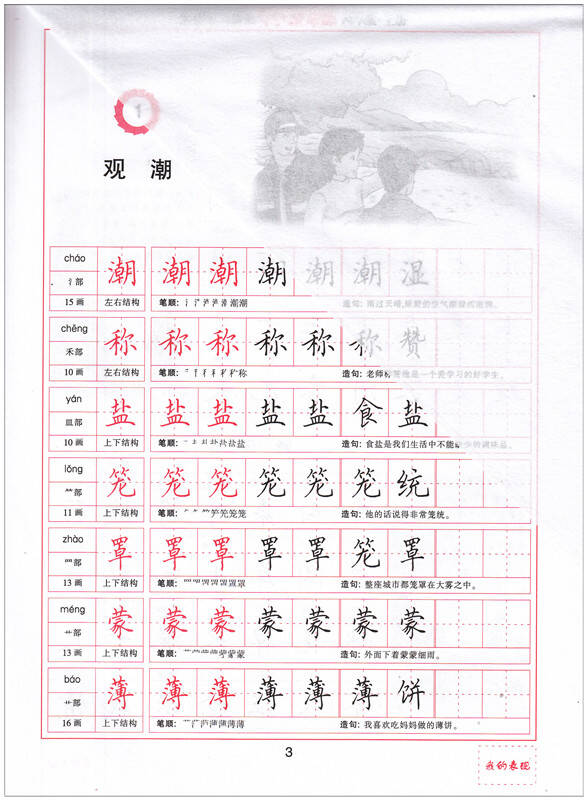 1
观 潮
cháo
氵部
15 画
左右结构
潮 潮 潮 潮 潮 潮 湿
笔顺:
造句: 雨过天晴,
chēng
禾部
10 画
左右结构
称 称 称 称 称 称 赞
笔顺:
造句: 老师 他是一个爱学习的好学生。
yán
皿部
10 画
上下结构
盐 盐 盐 盐 盐 食 盐
笔顺:
造句: 食盐是我们生活中不能缺少的调味品。
lǒng
⺮部
11 画
上下结构
笼 笼 笼 笼 笼 笼 统
笔顺:
造句: 他的话说得非常笼统。
zhào
罒部
13 画
上下结构
罩 罩 罩 罩 罩 笼 罩
笔顺:
造句: 整座城市都笼罩在大雾之中。
méng
艹部
13 画
上下结构
蒙 蒙 蒙 蒙 蒙 蒙 蒙
笔顺:
造句: 外面下着蒙蒙细雨。
báo
艹部
16 画
上下结构
薄 薄 薄 薄 薄 薄 饼
笔顺:
造句: 我喜欢吃妈妈做的薄饼。
3
我的表现